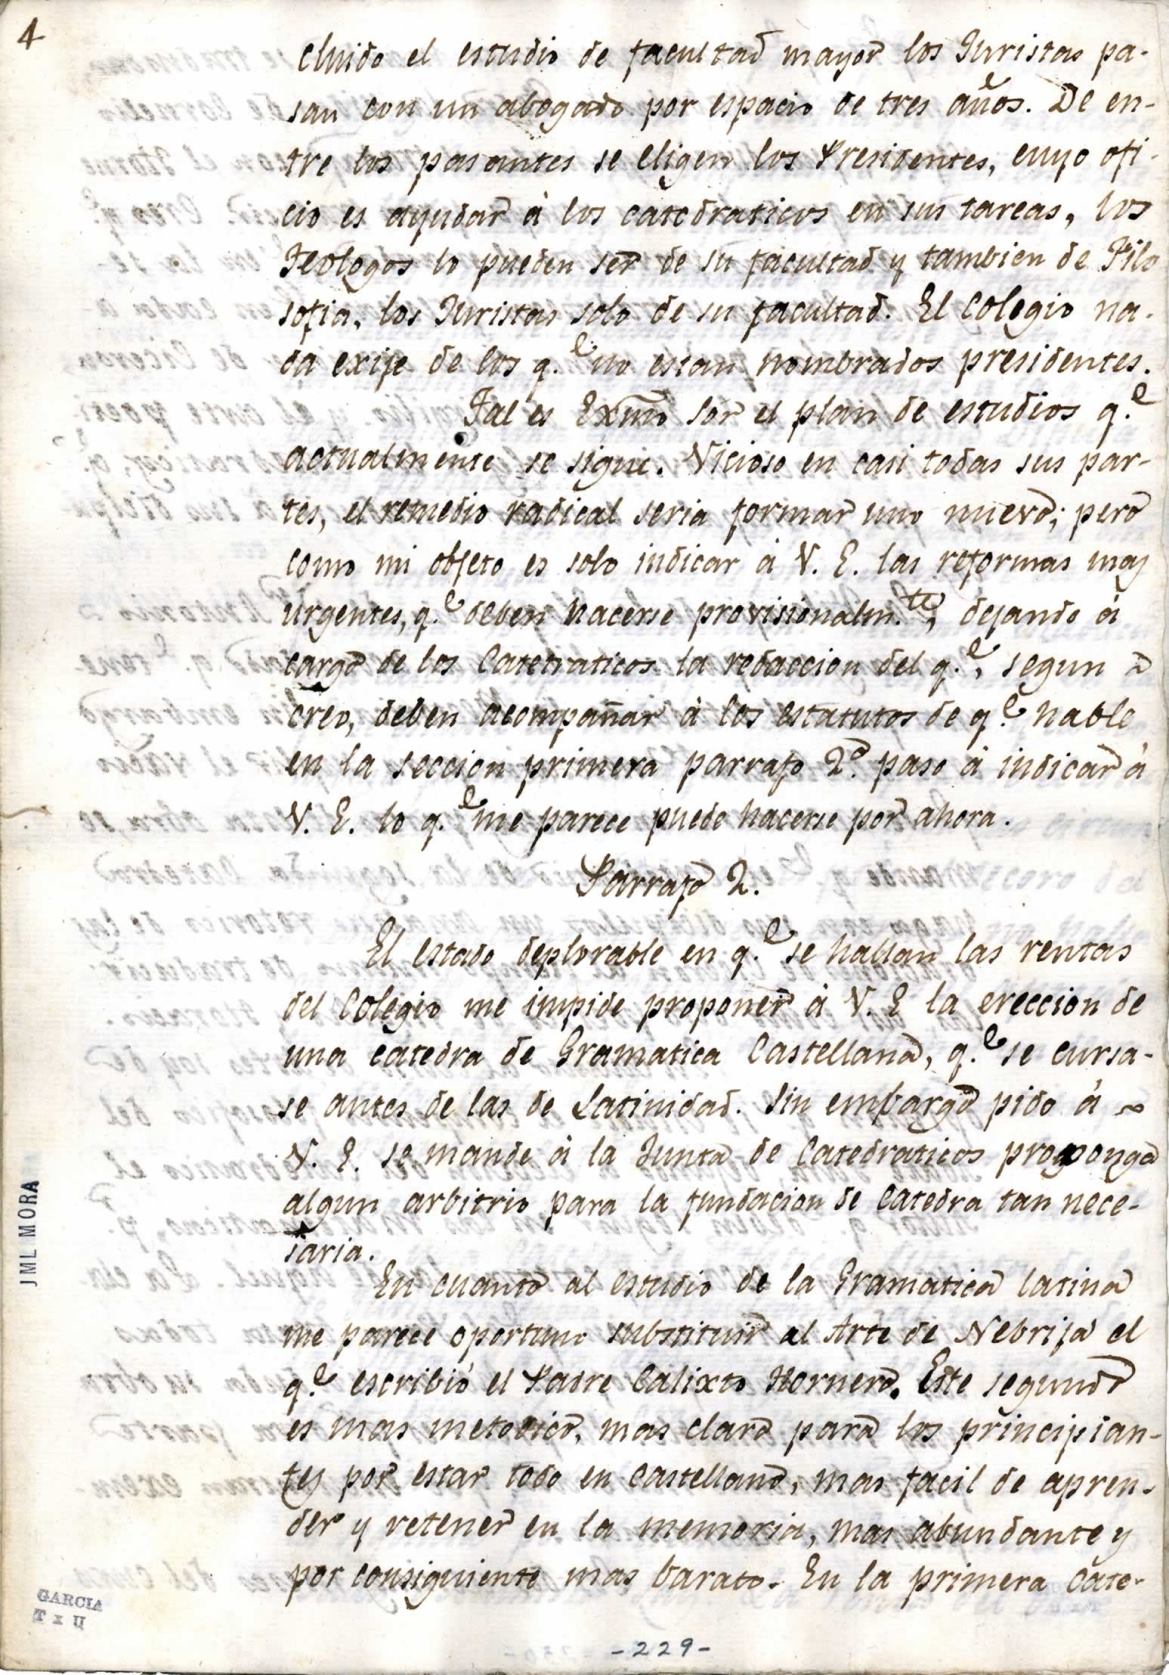 4
cluido el estudio de facultad mayor los Juristas pa-
san con un abogado por espacio de tres años. De en-
tre los pasantes se eligen los Presidentes, cuyo ofi-
cio es ayudar à los catedraticos en sus tareas, los
Teologos lo pueden ser de su facultad y tambien de Filo
sofia, los Juristas solo de su facultad. El Colegio na-
da exije de los q.e no estan nombrados presidentes.
Tal es Exmo Sor el plan de estudios q.e
actualmente se sigue. Vicioso en casi todas sus par-
tes, el remedio radical seria formar uno nuevo; pero
como mi objeto es solo indicar à V. E. las reformas mas
urgentes, q.e deben hacerse provisionalm.te, dejando à
cargo de los Catetraticos la redaccion del q.e, segun
creo, deben acompañar à los estatutos de q.e hable
en la seccion primera parrafo 2º paso à indicar à
V. E. lo q.e me parece puede hacerse por ahora.
Parrafo 2.
El estado deplorable en q.e se hallan las rentas
del Colegio me impide proponer à V. E la ereccion de
una catedra de Gramatica Castellana, q.e se cursa-
se antes de las de Latinidad. Sin embargo pido à
V. E. se mande à la Junta de Catedraticos proponga
algun arbitrio para la fundacion de Catedra tan nece-
saria.
En cuanto al estudio de la Gramatica latina
me parece oportuno substituir al Arte de Nebrija el
q.e escribió el Padre Calixto Hornero. Este segundo
es mas metodico, mas claro para los principian-
tes por estar todo en Castellano, mas facil de apren-
der y retener en la memoria, mas abundante y
por consiguiente mas barato. En la primera Cate-
JML MORA
GARCIA
-229-